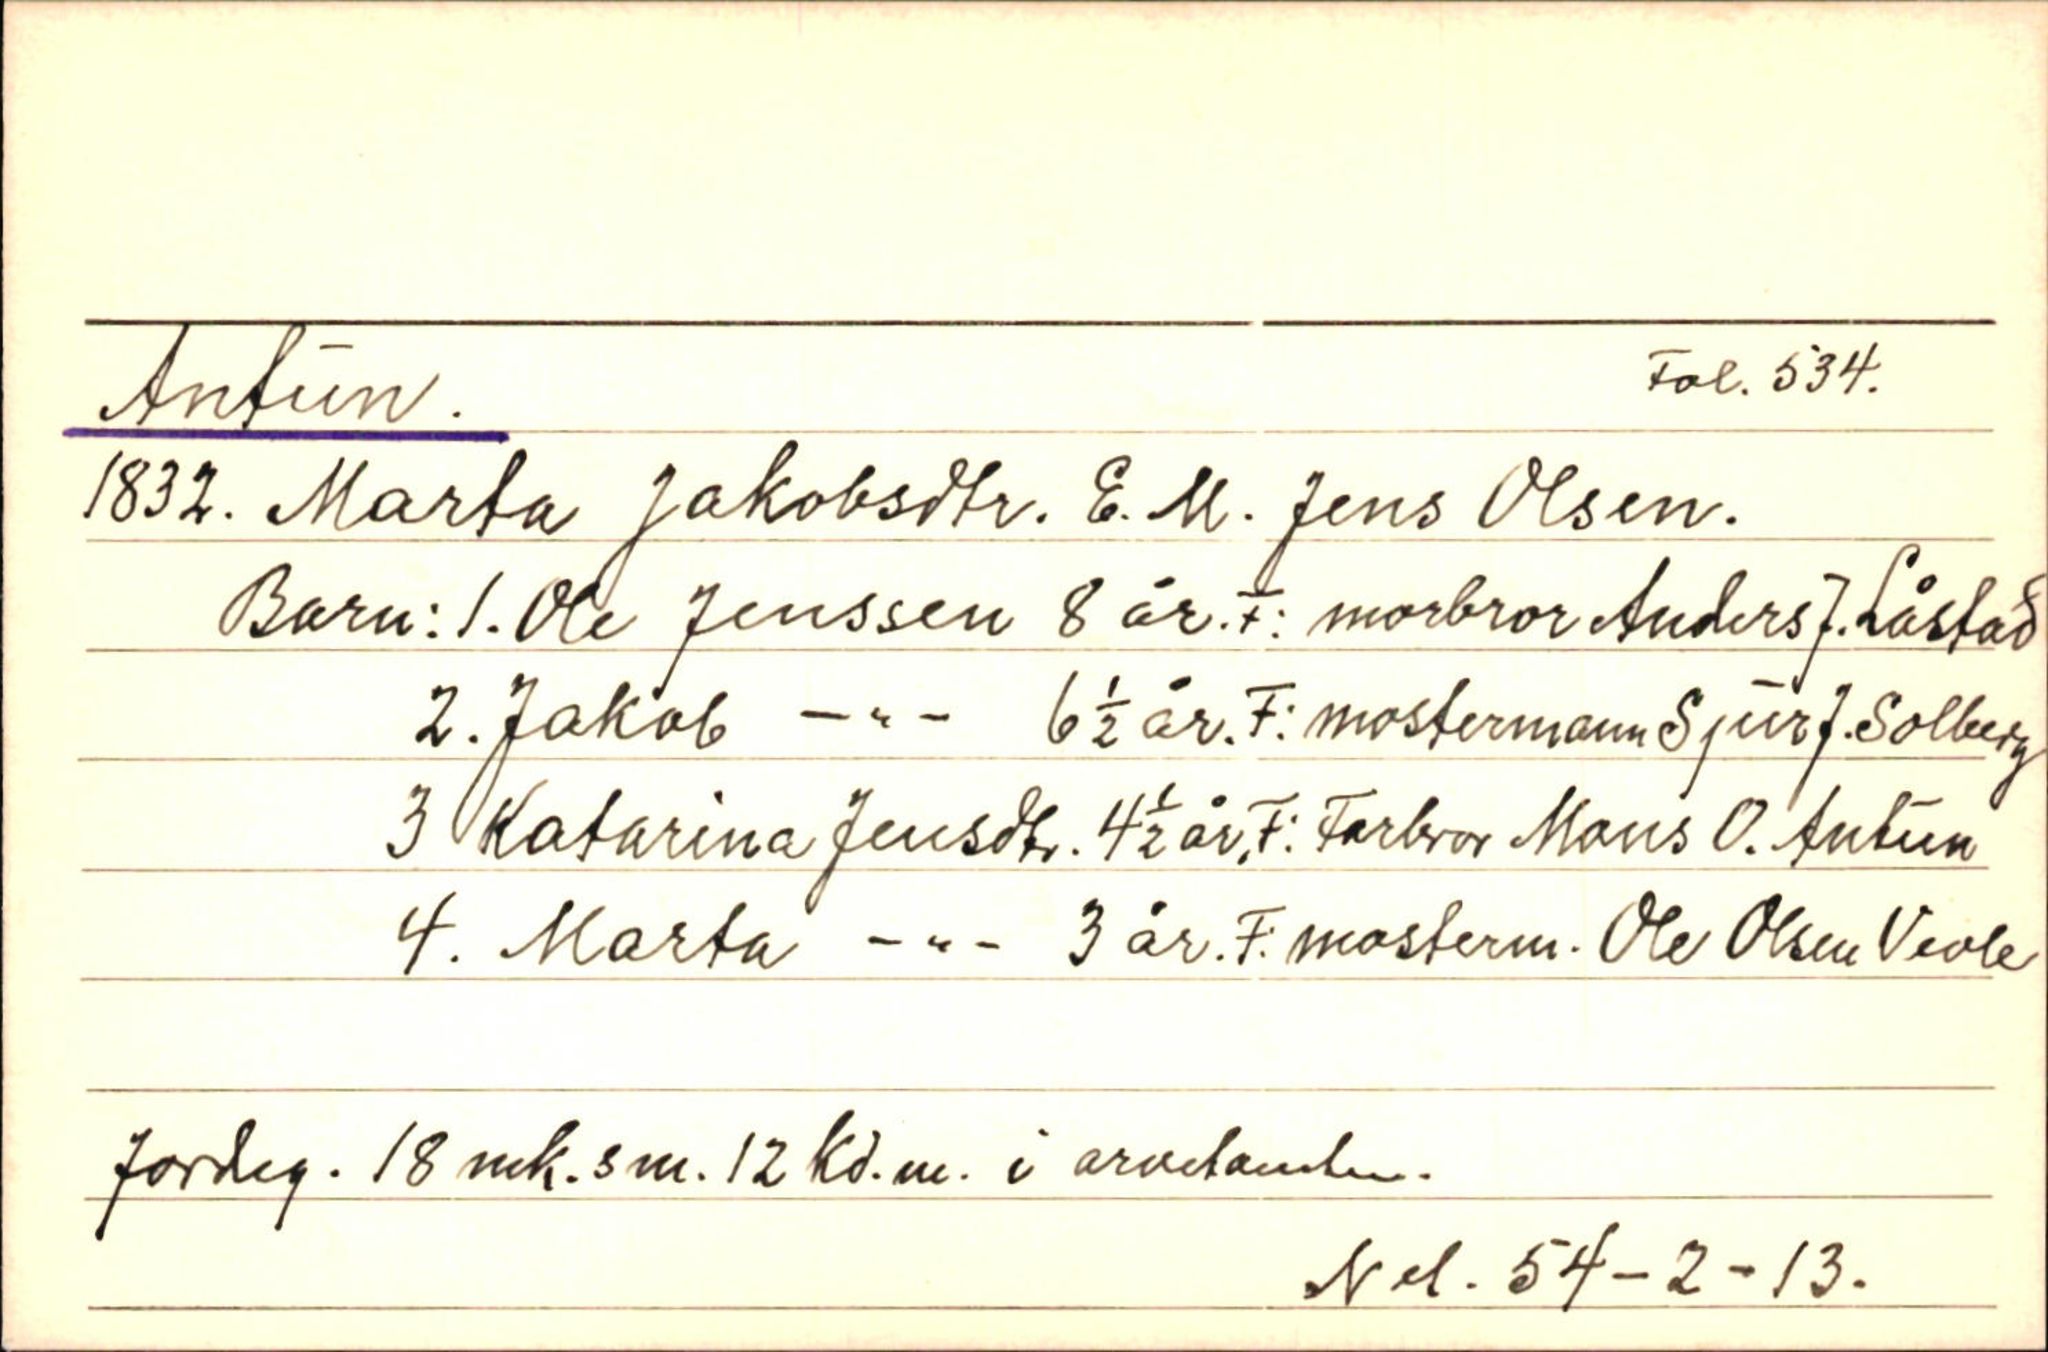 Antūn. Fol. 534.
1832. Marta Jakobsdtr. E. M. Jens Olsen.
Barn: 1. Ole Jenssen 8 år. F: morbror Anders J. Låstad
2. Jakob -"- 6 1/2 år. F: mostermann Sjūr J. Solberg
3 Katarina Jensdtr. 4 1/2 år, F: Farbror Mons O. Antūn
4. Marta -"- 3 år. F: mosterm. Ole Olsen Veole
Jordeg. 18 mk. sm. 12 Kd. m. i arvetomten.
Nel. 54-2-13.